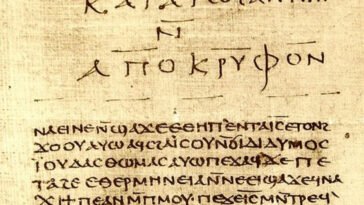 ⲕⲁⲧⲁ ⲓⲱϩⲁⲛⲛⲏⲛ
ⲛ̄
ⲁⲡⲟⲕⲣⲩⲫⲟⲛ
ⲛⲁⲉⲓⲛⲉⲛ̄ϣⲁϫⲉⲉⲑⲏⲡ ⲉⲛⲧⲁⲓ̅ⲥ̅ⲉⲧⲟⲛϩ
ϫⲟⲟⲩⲁⲩⲱⲁϥⲥϩⲁⲓⲥⲟⲩⲛ̄ϭⲓⲇⲓⲇⲩⲙⲟⲥ
ⲓⲟⲩⲇⲁⲥⲑⲱⲙⲁⲥⲁⲩⲱⲡⲉϫⲁϥϫⲉⲡⲉ
ⲧⲁϩⲉⲉⲑⲉⲣⲙⲏⲛⲉⲓⲁⲛ̄ⲛⲉⲉⲓϣⲁϫⲉϥⲛⲁ
ϫⲓϯⲡⲉⲁⲛⲙ̄ⲡⲙⲟⲩ ⲡⲉϫⲉⲓ̅ⲥ̅ⲙⲛ̄ⲧⲣⲉϥ